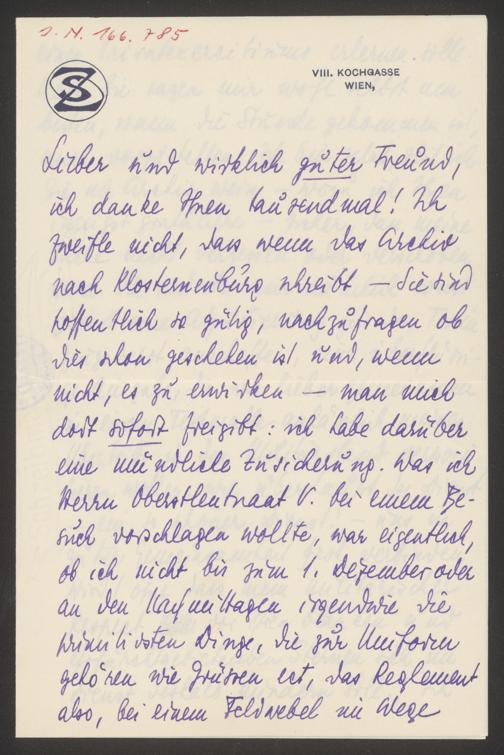 J. N. 166.785
SZ
VIII. KOCHGASSE
WIEN,
Lieber und wirklich guter Freund,
ich danke Ihnen tausendmal! Ich
zweifle nicht, dass wenn das Archiv
nach Klosterneuburg schreibt – Sie sind
hoffentlich so gütig, nachzufragen ob
dies schon geschehen ist und, wenn
nicht, es zu erwirken – man mich
dort sofort freigibt: ich habe darüber
eine mündliche Zusicherung. Was ich
Herrn Oberstleutnant V. bei einem Be-
such vorschlagen wollte, war eigentlich,
ob ich nicht bis zum 1. Dezember oder
an den Nachmittagen irgendwie die
primitivsten Dinge, die zur Uniform
gehören wie Grüssen ect, das Reglement
also, bei einem Feldwebel im Wege